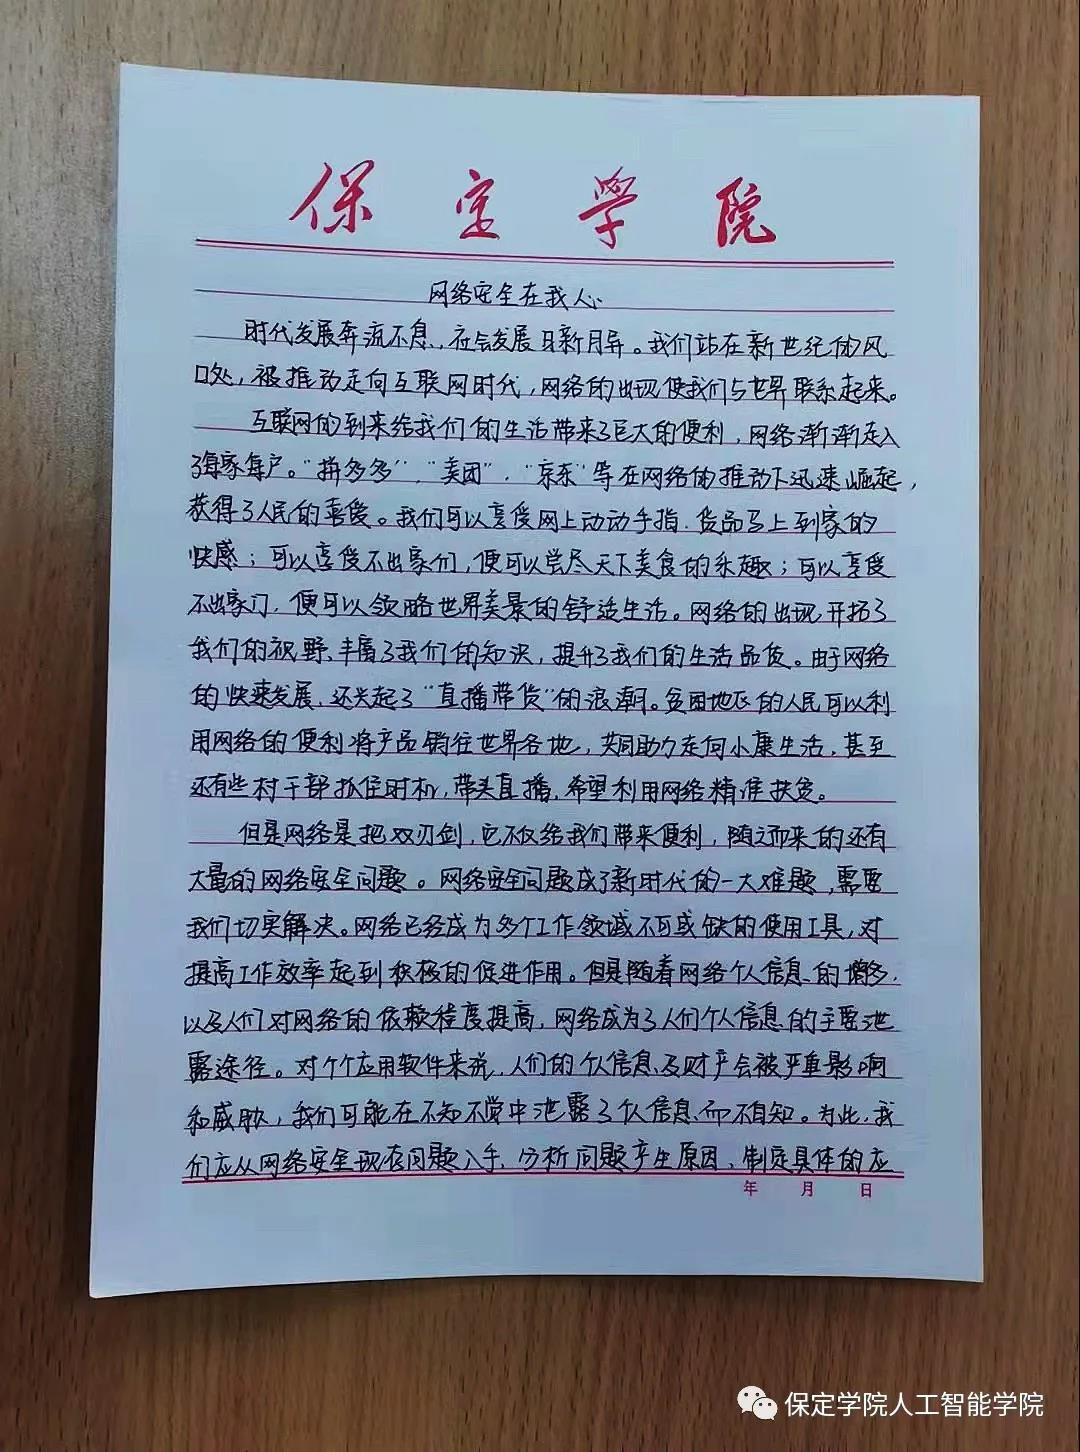 保定学院
网络安全在我心
时代发展奔流不息,社会发展日新月异。我们站在新世纪的风
口处,被推动走向互联网时代,网络的出现使我们与世界联系起来。
互联网的到来给我们的生活带来了巨大的便利,网络渐渐走入
了每家每户。“拼多多”,“美团”,“京东”等在网络的推动下迅速崛起,
获得了人民的喜爱。我们可以享受网上动动手指,货品马上到家的
快感;可以享受不出家们,便可以尝尽天下美食的乐趣;可以享受
不出家门,便可以领略世界美景的舒适生活。网络的出现开拓了
我们的视野、丰富了我们的知识,提升了我们的生活品质。由于网络
的快速发展,还兴起了“直播带货”的浪潮。贫困地区的人民可以利
用网络的便利将产品销往世界各地,共同助力走向小康生活,甚至
还有些村干部抓住时机,带头直播,希望利用网络精准扶贫。
但是网络是把双刃剑,它不仅给我们带来便利,随之而来的还有
大量的网络安全问题。网络安全问题成了新时代的一大难题,需要
我们切实解决。网络已经成为多个工作领域不可或缺的使用工具,对
提高工作效率起到积极的促进作用。但是随着网络个人信息的增多,
以及人们对网络的依赖程度提高,网络成为了人们个人信息的主要泄
露途径。对个个应用软件来说,人们的个人信息及财产会被严重影响
和威胁,我们可能在不知不觉中泄露了个人信息而不自知。为此,我
们应从网络安全现存问题入手,分析问题产生原因、制定具体的应
年 月 日
保定学院人工智能学院